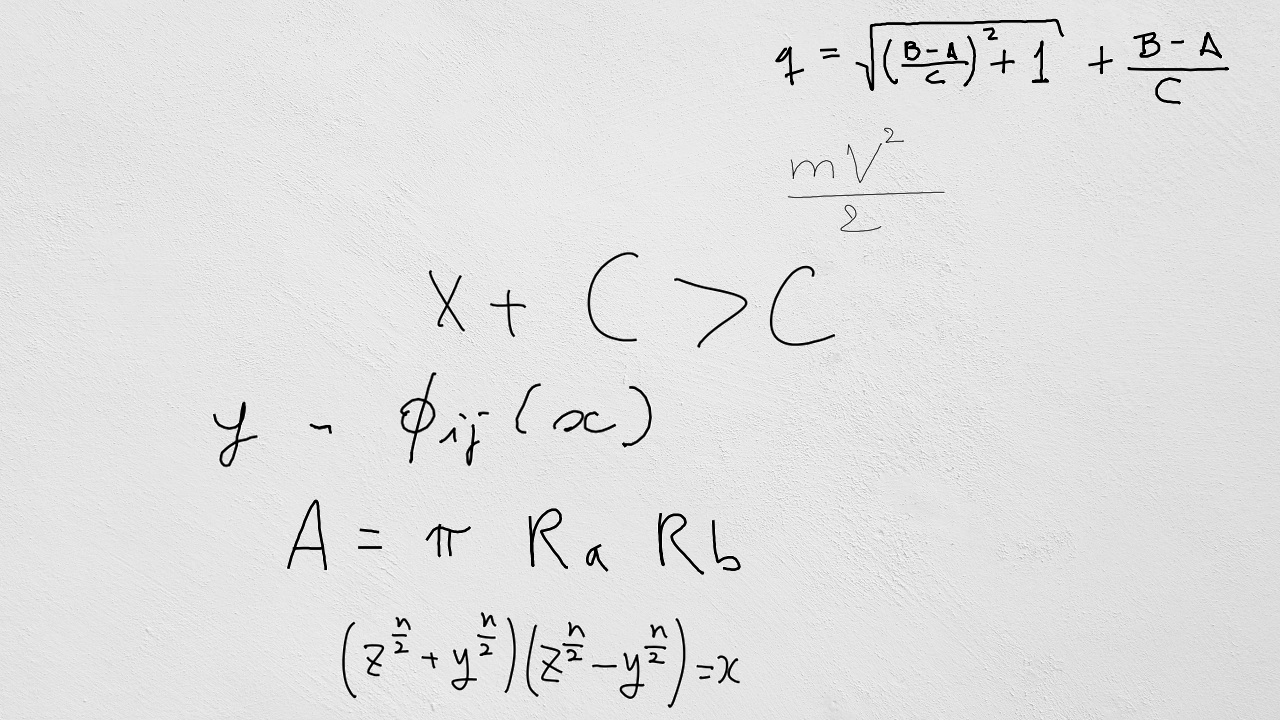 q = \sqrt{(\frac{B-A}{C})^2+1} + \frac{B-A}{C}
\frac{mV^2}{2}
X + C > C
y - \phi_{ij}(x)
A = \pi R_a R_b
(z^{\frac{n}{2}} + y^{\frac{n}{2}})(z^{\frac{n}{2}} - y^{\frac{n}{2}}) = x